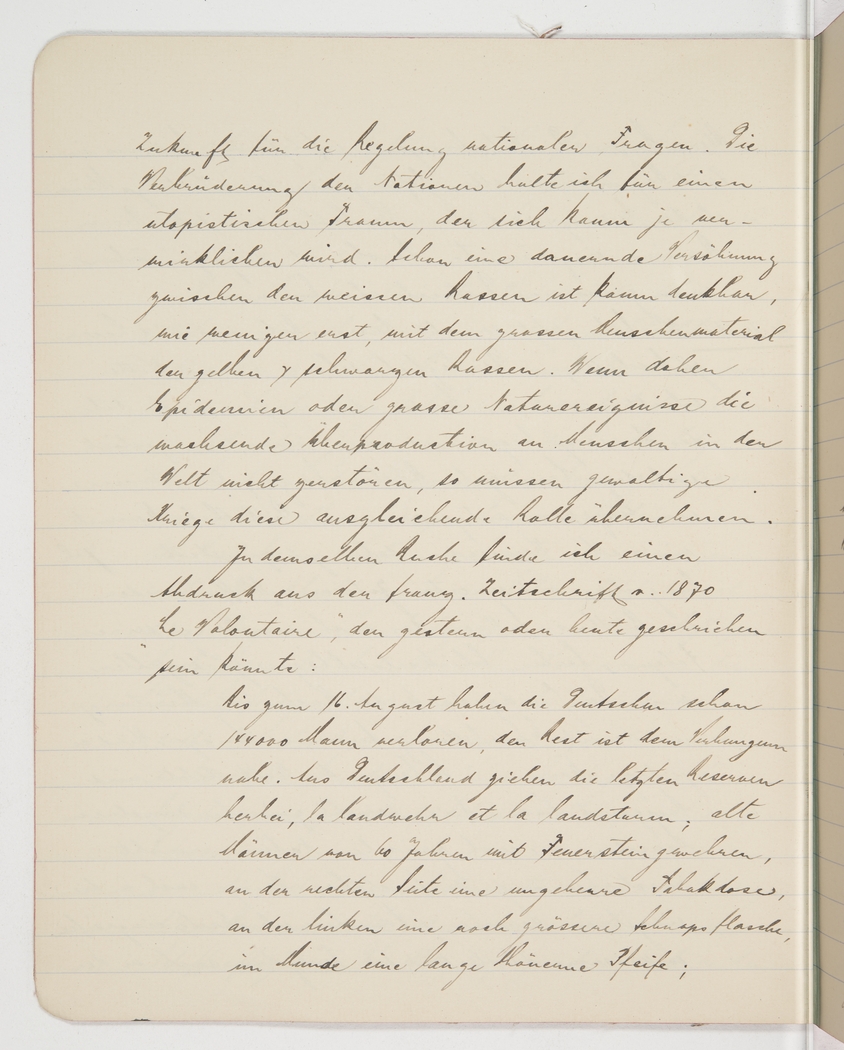 Zukunft für die Regelung nationaler Fragen. Die
Verbrüderung der Nationen halte ich für einen
utopistischen Traum, der sich kaum je ver-
wirklichen wird. Schon eine dauernde Versöhnung
zwischen den weissen Rassen ist kaum denkbar,
wie weniger erst, mit dem grossen Menschenmaterial
der gelben & schwarzen Rassen. Wenn daher
Epidemien oder grosse Naturereignisse die
wachsende Überproduktion an Menschen in der
Welt nicht zerstören, so müssen gewaltige
Kriege diese ausgleichende Rolle übernehmen.
In demselben Buche finde ich einen
Abdruck aus der franz. Zeitschrift v. 1870
„Le Volontaire", der gestern oder heute geschrieben
sein könnte:
Bis zum 16. August haben die Deutschen schon
144000 Mann verloren, der Rest ist dem Verhungern
nahe. Aus Deutschland ziehen die letzten Reserven
herbei, la landwehr et la landsturm; alte
Männer von 60 Jahren mit Feuersteingewehren,
an der rechten Seite eine ungeheure Tabakdose,
an der linken eine noch grössere Schnapsflasche,
im Munde eine lange thönerne Pfeife;